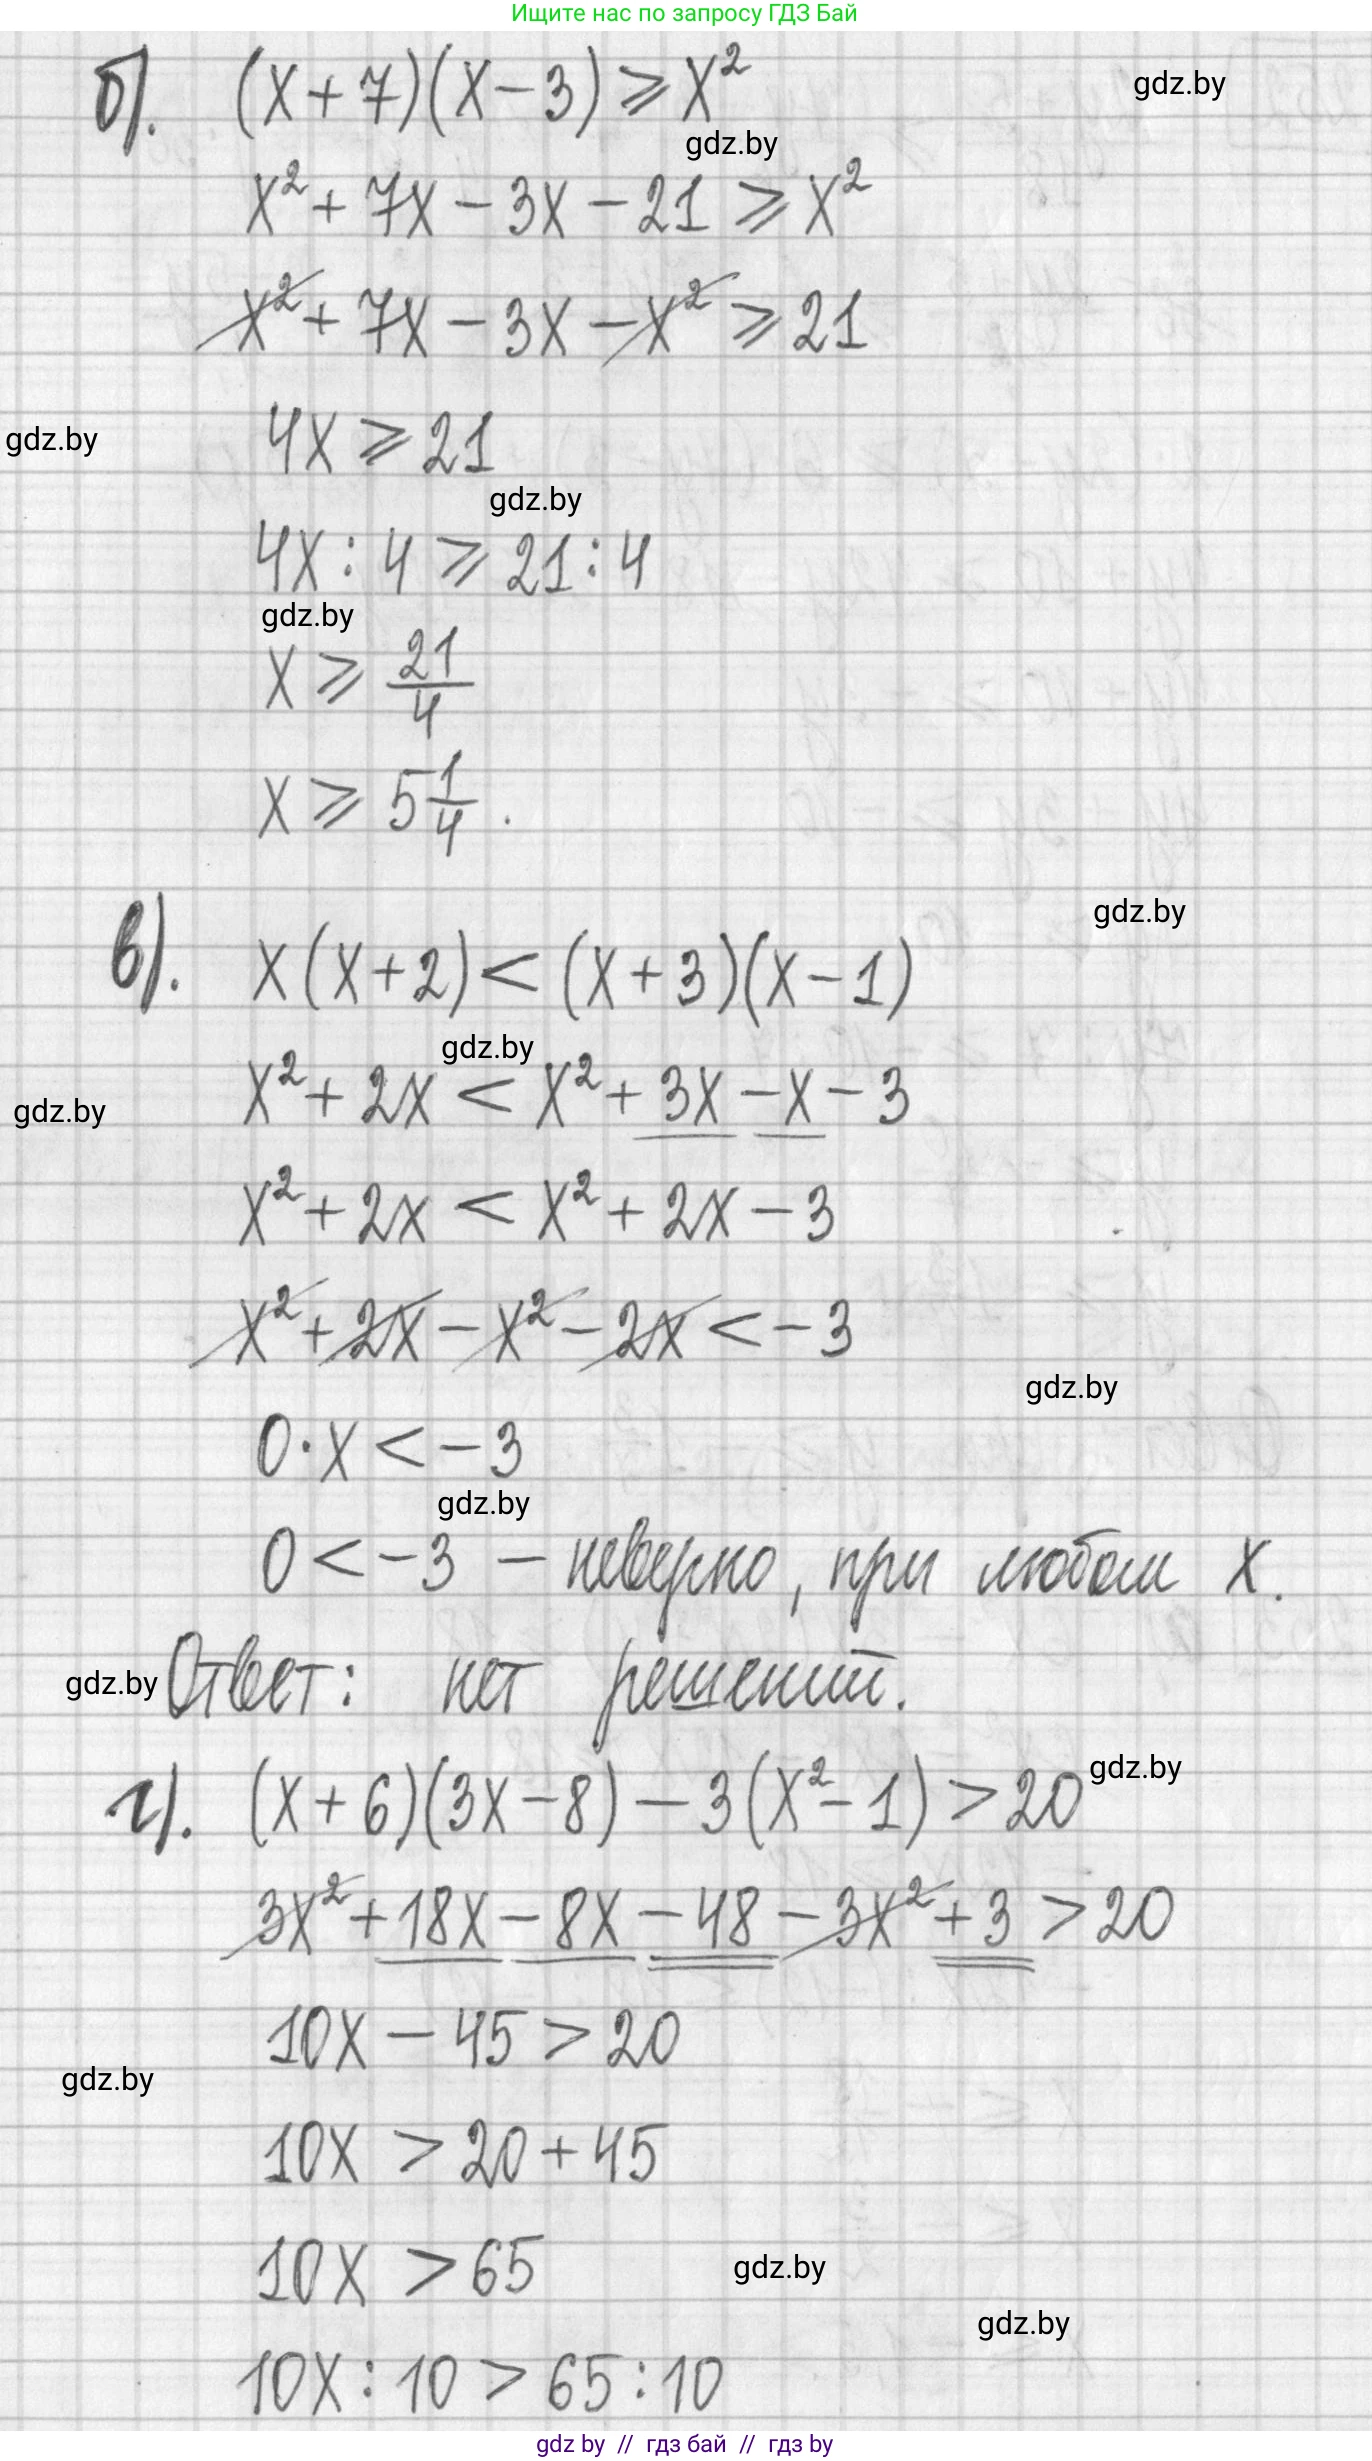 Ищите нас по запросу ГДЗ Бай
б). (x+7)(x-3) ⩾ x²
gdz.by
gdz.by
x² + 7x - 3x - 21 ⩾ x²
x² + 7x - 3x - x² ⩾ 21
4x ⩾ 21
gdz.by
gdz.by
4x : 4 ⩾ 21 : 4
gdz.by
x ⩾ 21/4
x ⩾ 5 1/4 .
gdz.by
в). x(x+2) < (x+3)(x-1)
gdz.by
x² + 2x < x² + 3x - x - 3
gdz.by
x² + 2x < x² + 2x - 3
x² + 2x - x² - 2x < -3
gdz.by
0·x < -3
gdz.by
0 < -3 - неверно, при любом x.
gdz.by
Ответ: нет решений.
gdz.by
г). (x+6)(3x-8) - 3(x²-1) > 20
3x² + 18x - 8x - 48 - 3x² + 3 > 20
10x - 45 > 20
gdz.by
10x > 20 + 45
10x > 65
gdz.by
gdz.by
10x : 10 > 65 : 10
gdz by // гдз бай // гдз by